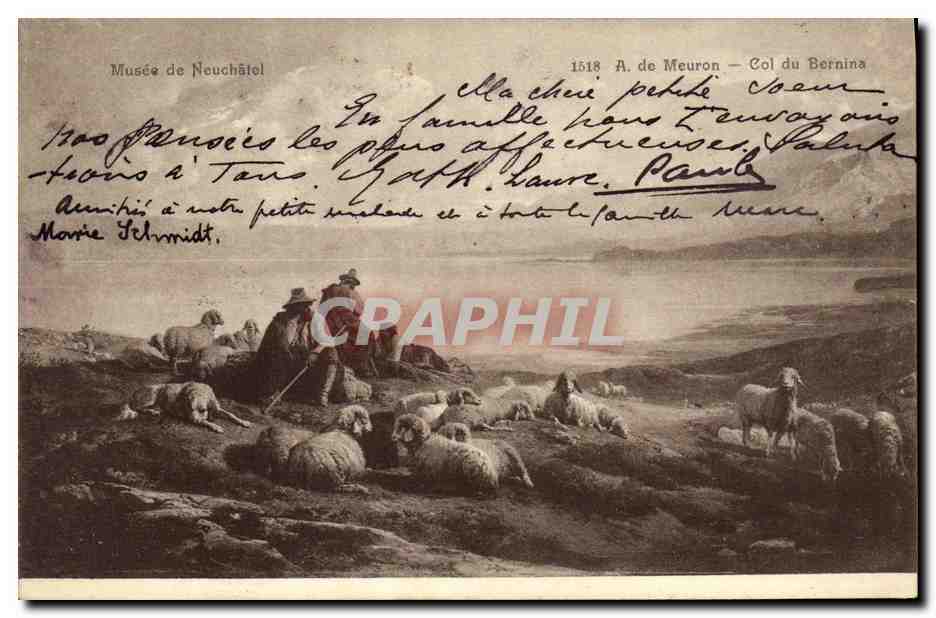 Musée de Neuchâtel
1518 A. de Meuron – Col du Bernina
Ma chère petite soeur
En famille nous t'envoyons
nos Pensées les plus affectueuses. Saluta
tions à Tous. Laure. Paul
Amitiés à notre petite malade et à toute la famille Marc.
Marie Schmidt.
© CRAPHIL